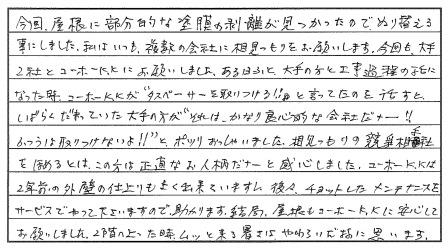 今回、屋根に部分的な塗膜の剥離が見つかったのでぬり替える
事にしました。私はいつも、複数の会社に相見つもりをお願いします。今回も、大手
2社とユーホーK.Kにお願いしました。あるひと、大手の方と工事過程の話に
なった時、ユーホーK.Kが"タスペーサーを取りつける!!"と言ってたのを話すと、
しばらくだまっていた大手の方が"それは、かなり良心的な会社だナー!!
ふつうは取りつけないよ!!"と、ポツリおっしゃいました。相見つもりの競争相手
をほめるとは、この方は正直なお人柄だナーと感心しました。ユーホーK.Kは
2年前の外壁の仕上りもよく出来ていますし、後々、チョットしたメンテナンスを
サービスでやって下さいますので、助かります。結局、屋根もユーホーK.Kに安心して
お願いしました。2階へ上った時、ムッと来る暑さは やわらいだ様に思います。